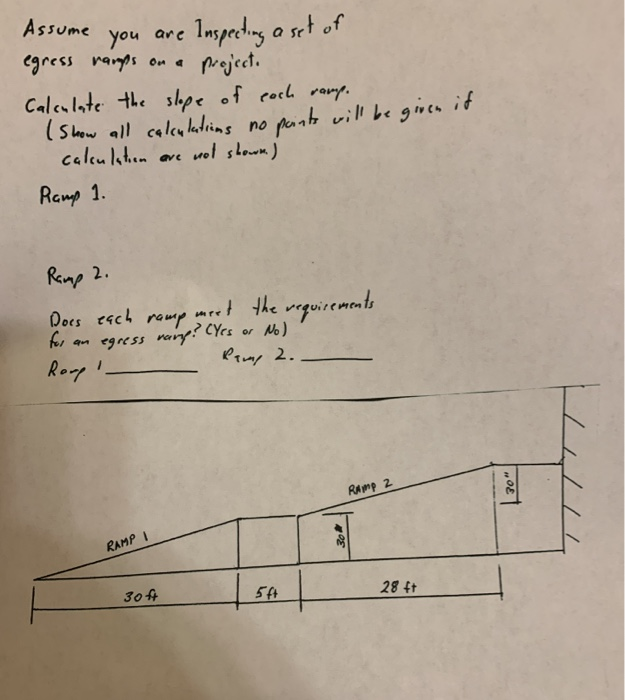 Assume you are Inspecting a set of
egress ramps on a project.
Calculate the slope of each ramp.
(Show all calculations no points will be given if
calculation are not shown.)
Ramp 1.
Ramp 2.
Does each ramp meet the requirements
for an egress ramp? (Yes or No)
Ramp 1. ________ Ramp 2. ________
RAMP 1
RAMP 2
30"
30"
30 ft
5 ft
28 ft